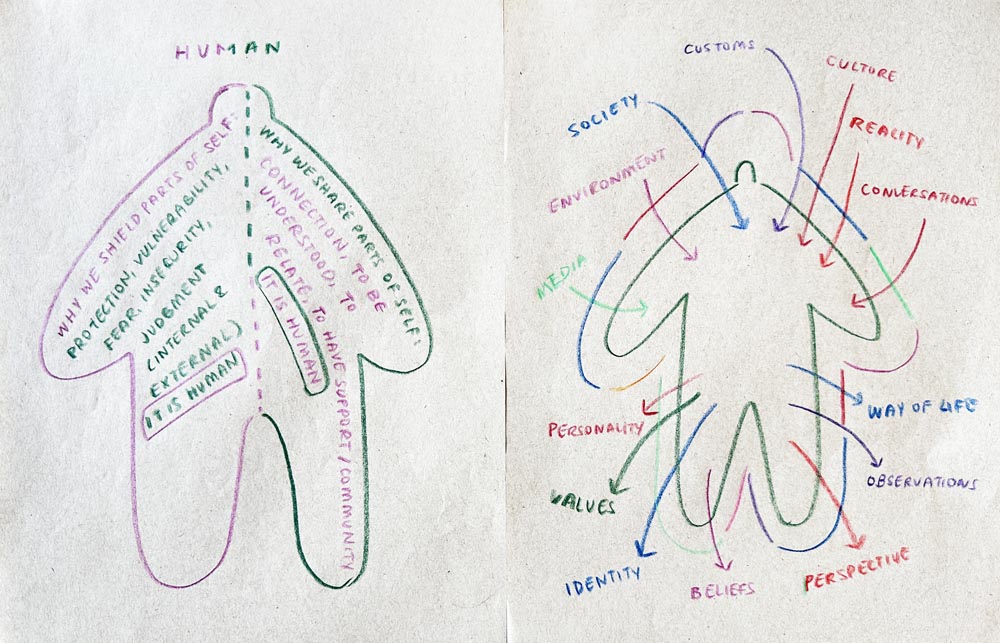 HUMAN
WHY WE SHIELD PARTS OF SELF:
PROTECTION, VULNERABILITY,
FEAR, INSEQURITY,
JUDGMENT
(INTERNAL &
EXTERNAL)
IT IS HUMAN
WHY WE SHARE PARTS OF SELF:
CONNECTION, TO BE
UNDERSTOOD, TO
RELATE, TO HAVE SUPPORT/COMMUNITY
IT IS HUMAN
CUSTOMS
CULTURE
SOCIETY
REALITY
ENVIRONMENT
CONVERSATIONS
MEDIA
PERSONALITY
WAY OF LIFE
VALUES
OBSERVATIONS
IDENTITY
BELIEFS
PERSPECTIVE